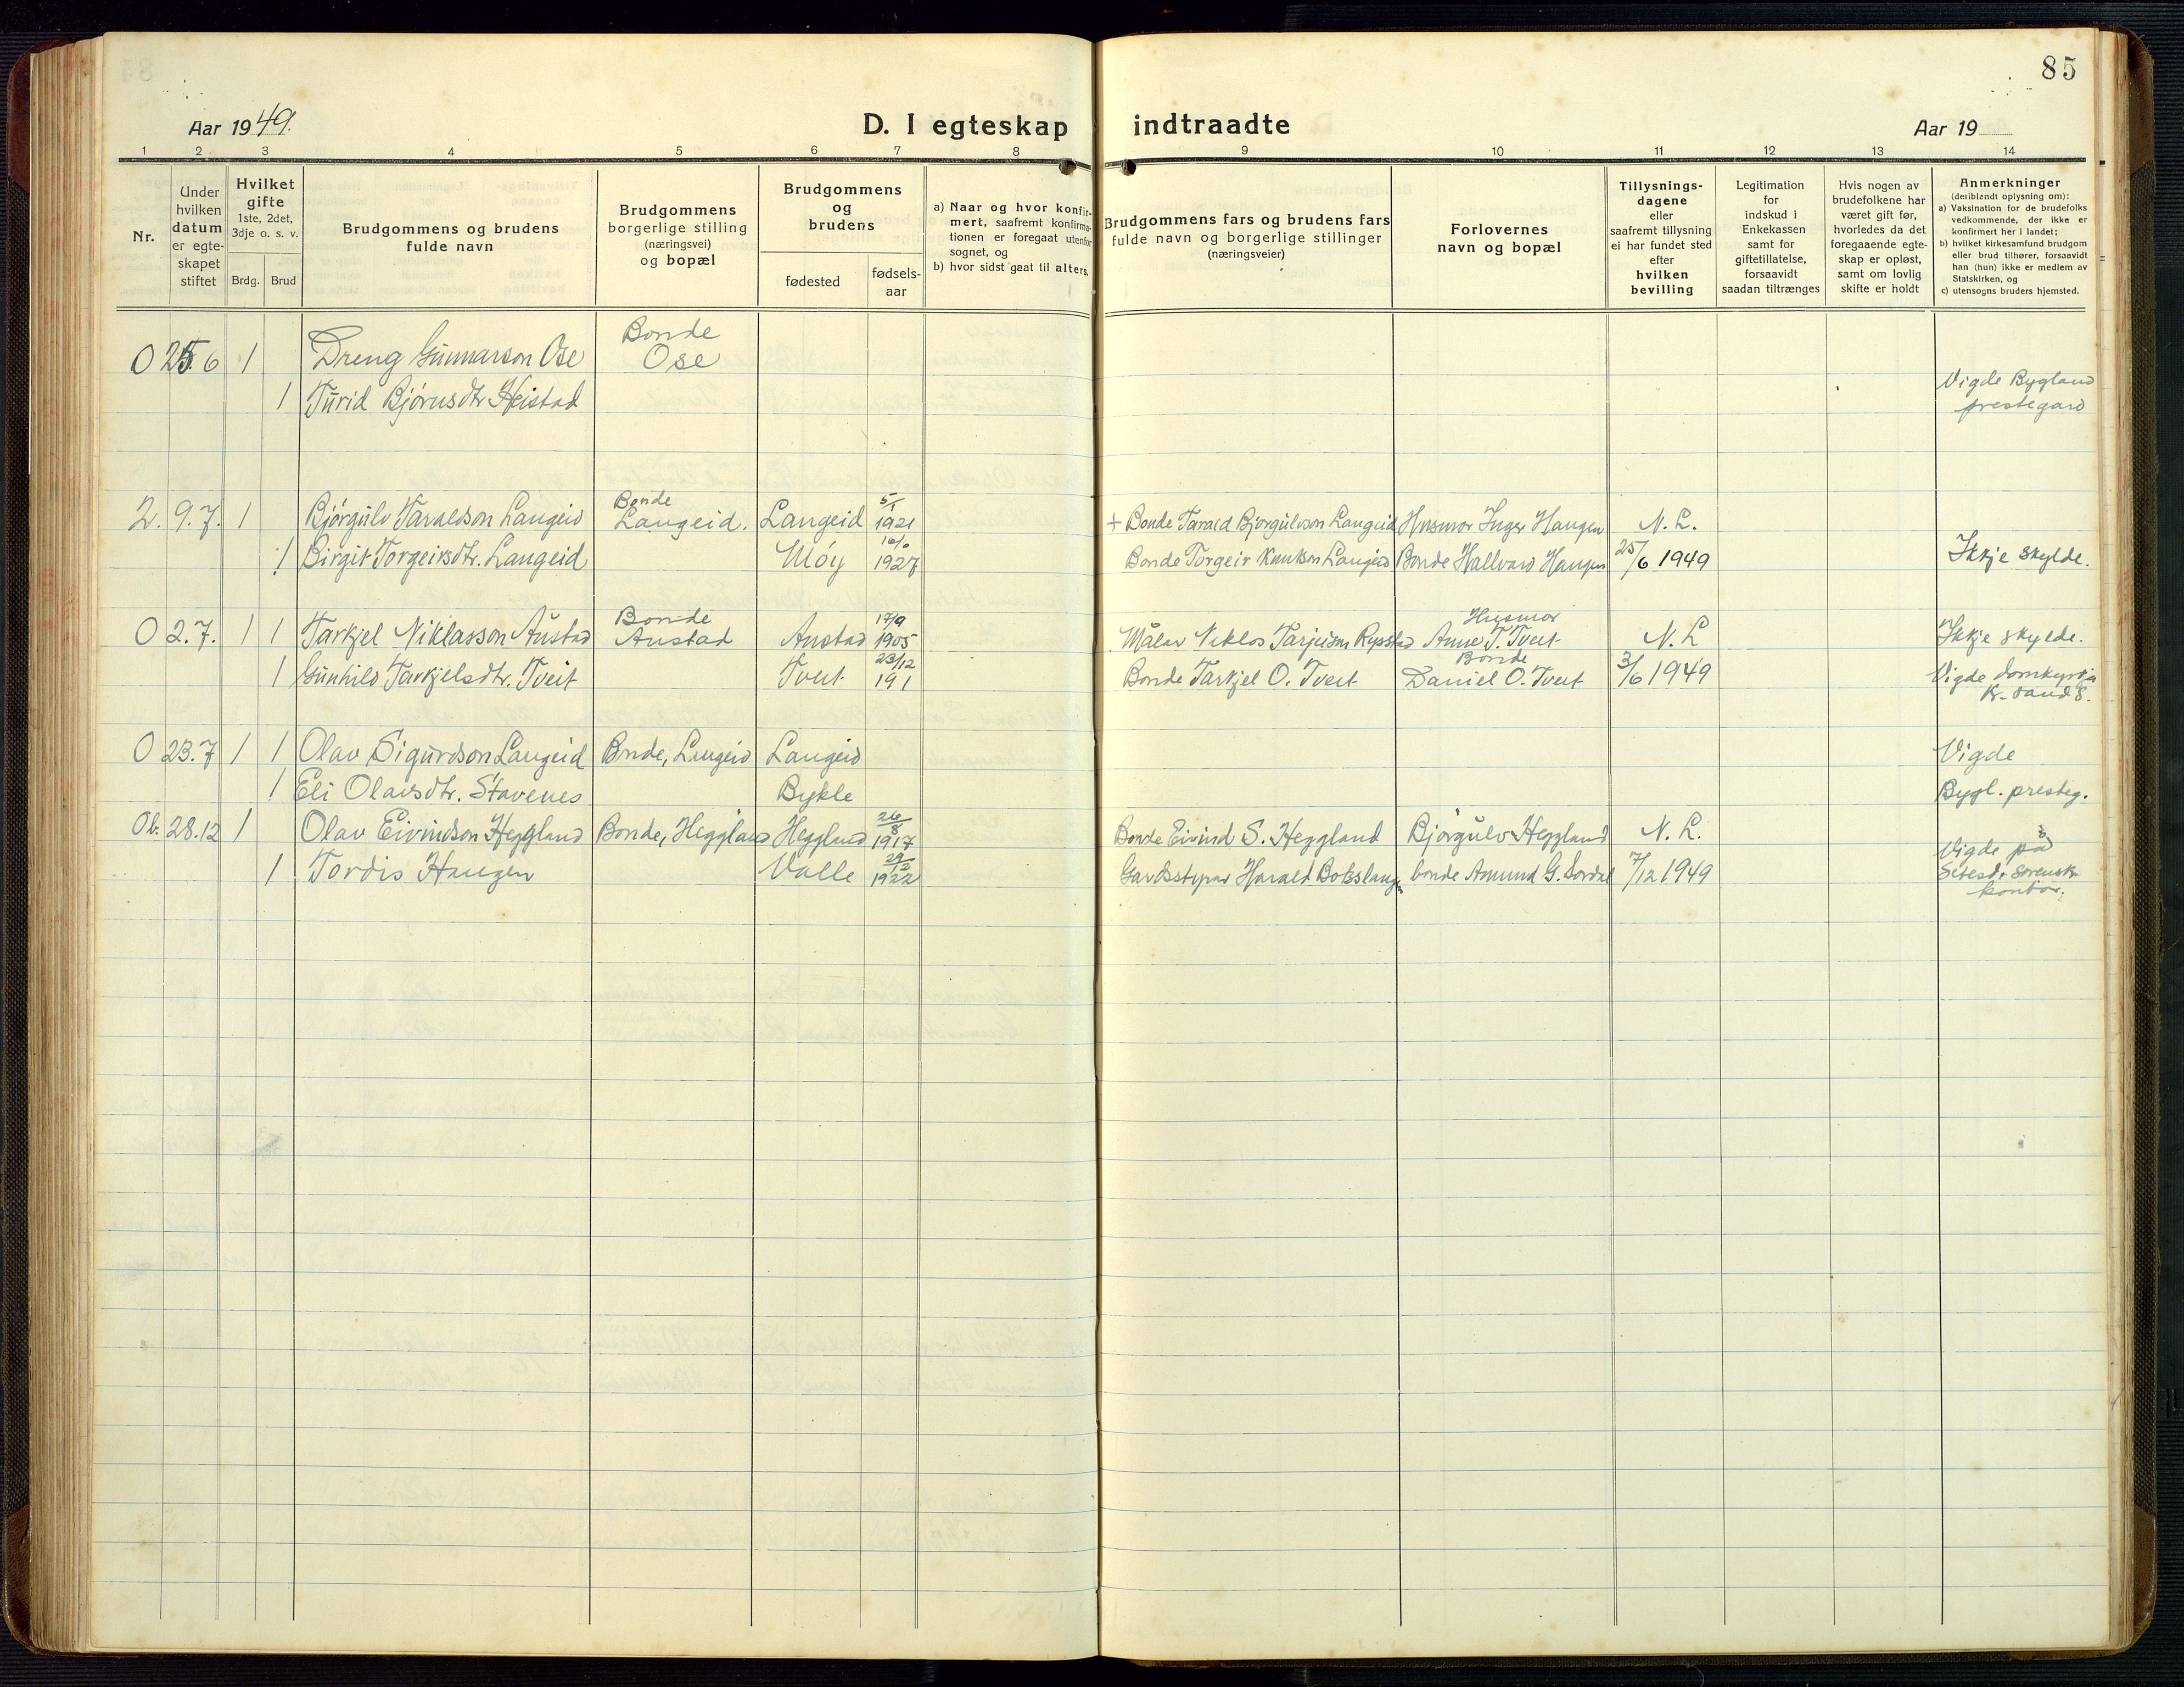 85
Aar 1949.
D. I egteskap indtraadte
Aar 19
1 2 3 4 5 6 7 8 9 10 11 12 13 14
Nr.
Under
hvilken
datum
er egte-
skapet
stiftet
Hvilket
gifte
1ste, 2det,
3dje o. s. v.
Brdg. Brud
Brudgommens og brudens
fulde navn
Brudgommens
borgerlige stilling
(næringsvei)
og bopæl
Brudgommens
og
brudens
fødested
fødsels-
aar
a) Naar og hvor konfir-
mert, saafremt konfirma-
tionen er foregaat utenfor
sognet, og
b) hvor sidst gaat til alters.
Brudgommens fars og brudens fars
fulde navn og borgerlige stillinger
(næringsveier)
Forlovernes
navn og bopæl
Tillysnings-
dagene
eller
saafremt tillysning
ei har fundet sted
efter
hvilken
bevilling
Legitimation
for
indskud i
Enkekassen
samt for
giftetillatelse,
forsaavidt
saadan tiltrænges
Hvis nogen av
brudefolkene har
været gift før,
hvorledes da det
foregaaende egte-
skap er opløst,
samt om lovlig
skifte er holdt
Anmerkninger
(deriblandt oplysning om):
a) Vaksination for de brudefolks
vedkommende, der ikke er
konfirmert her i landet;
b) hvilket kirkesamfund brudgom
eller brud tilhører, forsaavidt
han (hun) ikke er medlem av
Statskirken, og
c) utensogns bruders hjemsted.
Bonde
0 25.6 1 Dreng Gunnarson Ose Ose
1 Turid Bjørnsdtr Heistad
Vigde Bygland
prestegard
Bonde 5/1
2. 9.7. 1 Bjørgulv Taraldson Langeid Langeid. Langeid 1921 + Bonde Tarald Bjørgulvson Langeid Husmor Inger Haugen N. L.
1 Birgit Torgeirsdtr. Langeid Móy 1927 Bonde Torgeir Knutson Langeid Bonde Hallvard Haugen 25/6 1949 Ikkje skylde.
Bonde 17/9 Husmor
0 2.7. 1 1 Tarkjel Niklasson Austad Austad Austad 1905 Målar Niklos Tarjeison Rysstad Anne T. Tveit N. L Ikkje skylde.
23/12 Bonde
1 Gunhild Tarkjelsdtr. Tveit Tveit 191 Bonde Tarkjel O. Tveit Daniel O. Tveit 3/6 1949 Vigde domkyrkja
Kr. sand S.
0 23.7 1 1 Olav Sigurdson Langeid Bonde, Langeid Langeid Vigde
1 Eli Olavsdtr. Stavenes Bykle Bygl. presteg.
26/8
Ob. 28.12 1 Olav Eivindson Heggland Bonde, Heggland Heggland 1917 Bonde Eivind S. Heggland Bjørgulv Heggland N. L.
1 Tordis Haugen Valle 1922 Gardsstyrar Harald Botslangen bonde Amund G. Sordal 7/12 1949 Vigde på
Setesd. sorenskr.
kontor.